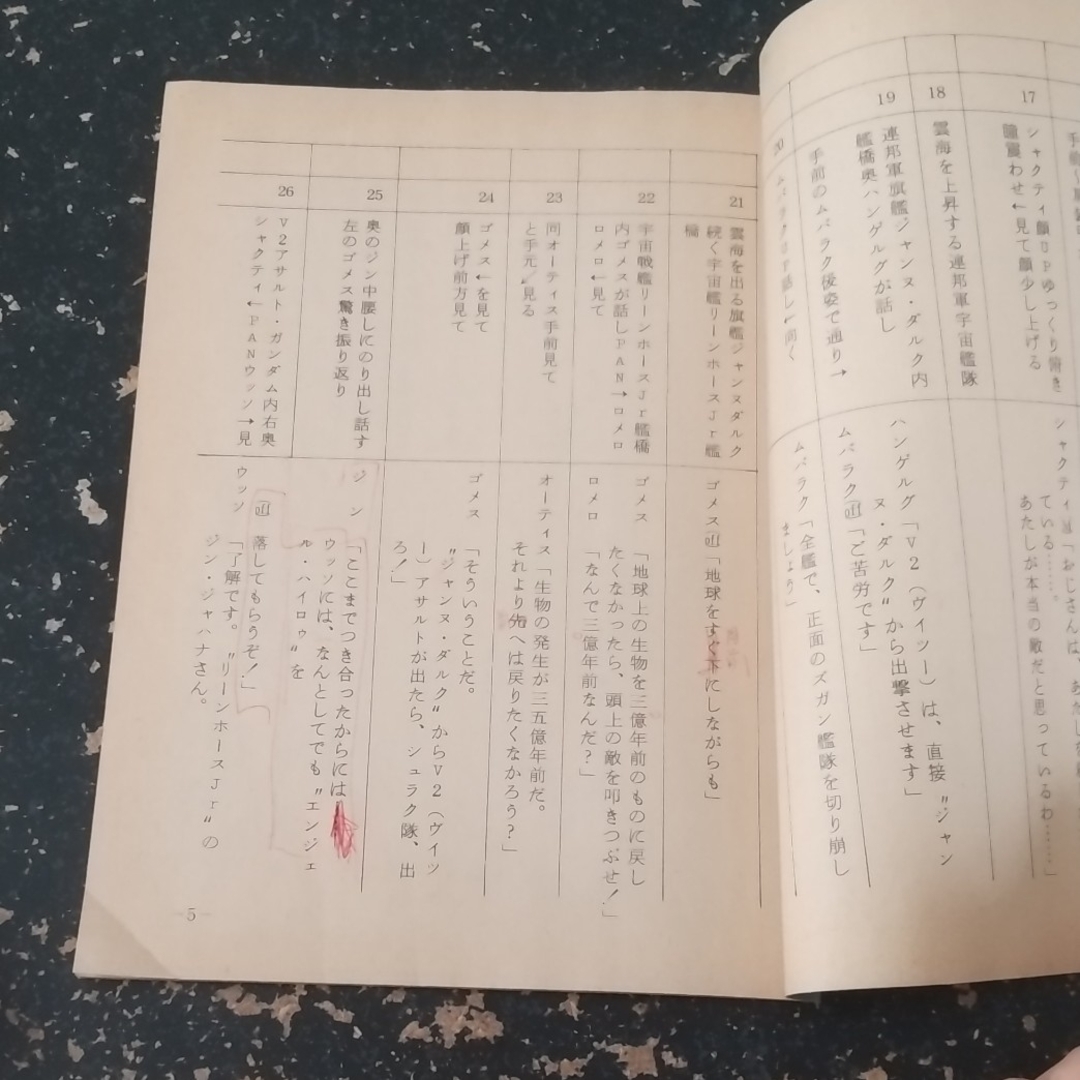 17
シャクティ顔UPゆっくり俯き
瞳震わせ←見て顔少し上げる
シャクティ
「おじさんは、
ている……。
あたしが本当の敵だと思っているわ……」
18
雲海を上昇する連邦軍宇宙艦隊
19
連邦軍旗艦ジャンヌ・ダルク内
艦橋奥ハンゲルグが話し
手前のムバラク後姿で通り→
ハンゲルグ「V2(ヴィツー)は、直接〝ジャン
ヌ・ダルク〟から出撃させます」
ムバラクoff「ご苦労です」
20
ムバラク「全艦で、正面のズガン艦隊を切り崩し
ましょう」
21
雲海を出る旗艦ジャンヌダルク
続く宇宙艦リーンホースJr艦
橋
ゴメスoff「地球をすぐ下にしながらも」
22
宇宙戦艦リーンホースJr艦橋
内ゴメスが話しPAN→ロメロ
ロメロ←見て
ゴメス「地球上の生物を三億年前のものに戻し
たくなかったら、頭上の敵を叩きつぶせ!」
ロメロ「なんで三億年前なんだ?」
23
同オーティス手前見て
と手元↙見る
オーティス「生物の発生が三五億年前だ。
それより先へは戻りたくなかろう?」
24
ゴメス←を見て
顔上げ前方見て
ゴメス「そういうことだ。
〝ジャンヌ・ダルク〟からV2(ヴィツ
ー)アサルトが出たら、シュラク隊、出
ろ!」
25
奥のジン中腰しにのり出し話す
左のゴメス驚き振り返り
ジン「ここまでつき合ったからには
ウッソには、なんとしてでも〝エンジェ
ル・ハイロゥ〟を
off落してもらうぞ!」
26
V2アサルト・ガンダム内右奥
シャクティ←PANウッソ→見
ウッソ「了解です。〝リーンホースJr〟の
ジン・ジャハナさん。
-5-